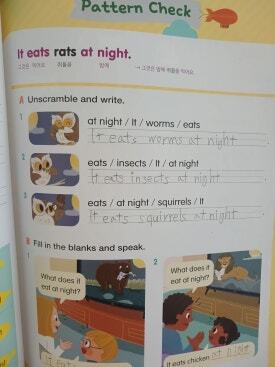 Pattern Check
It eats rats at night.
그것은 먹어요 쥐들을 밤에 → 그것은 밤에 쥐들을 먹어요.
A Unscramble and write.
1 at night / It / worms / eats
It eats worms at night.
2 eats / insects / It / at night
It eats insects at night.
3 eats / at night / squirrels / It
It eats squirrels at night.
B Fill in the blanks and speak.
1 2
What does it
eat at night?
What does it
eat at night?
It eats
It eats chicken at night